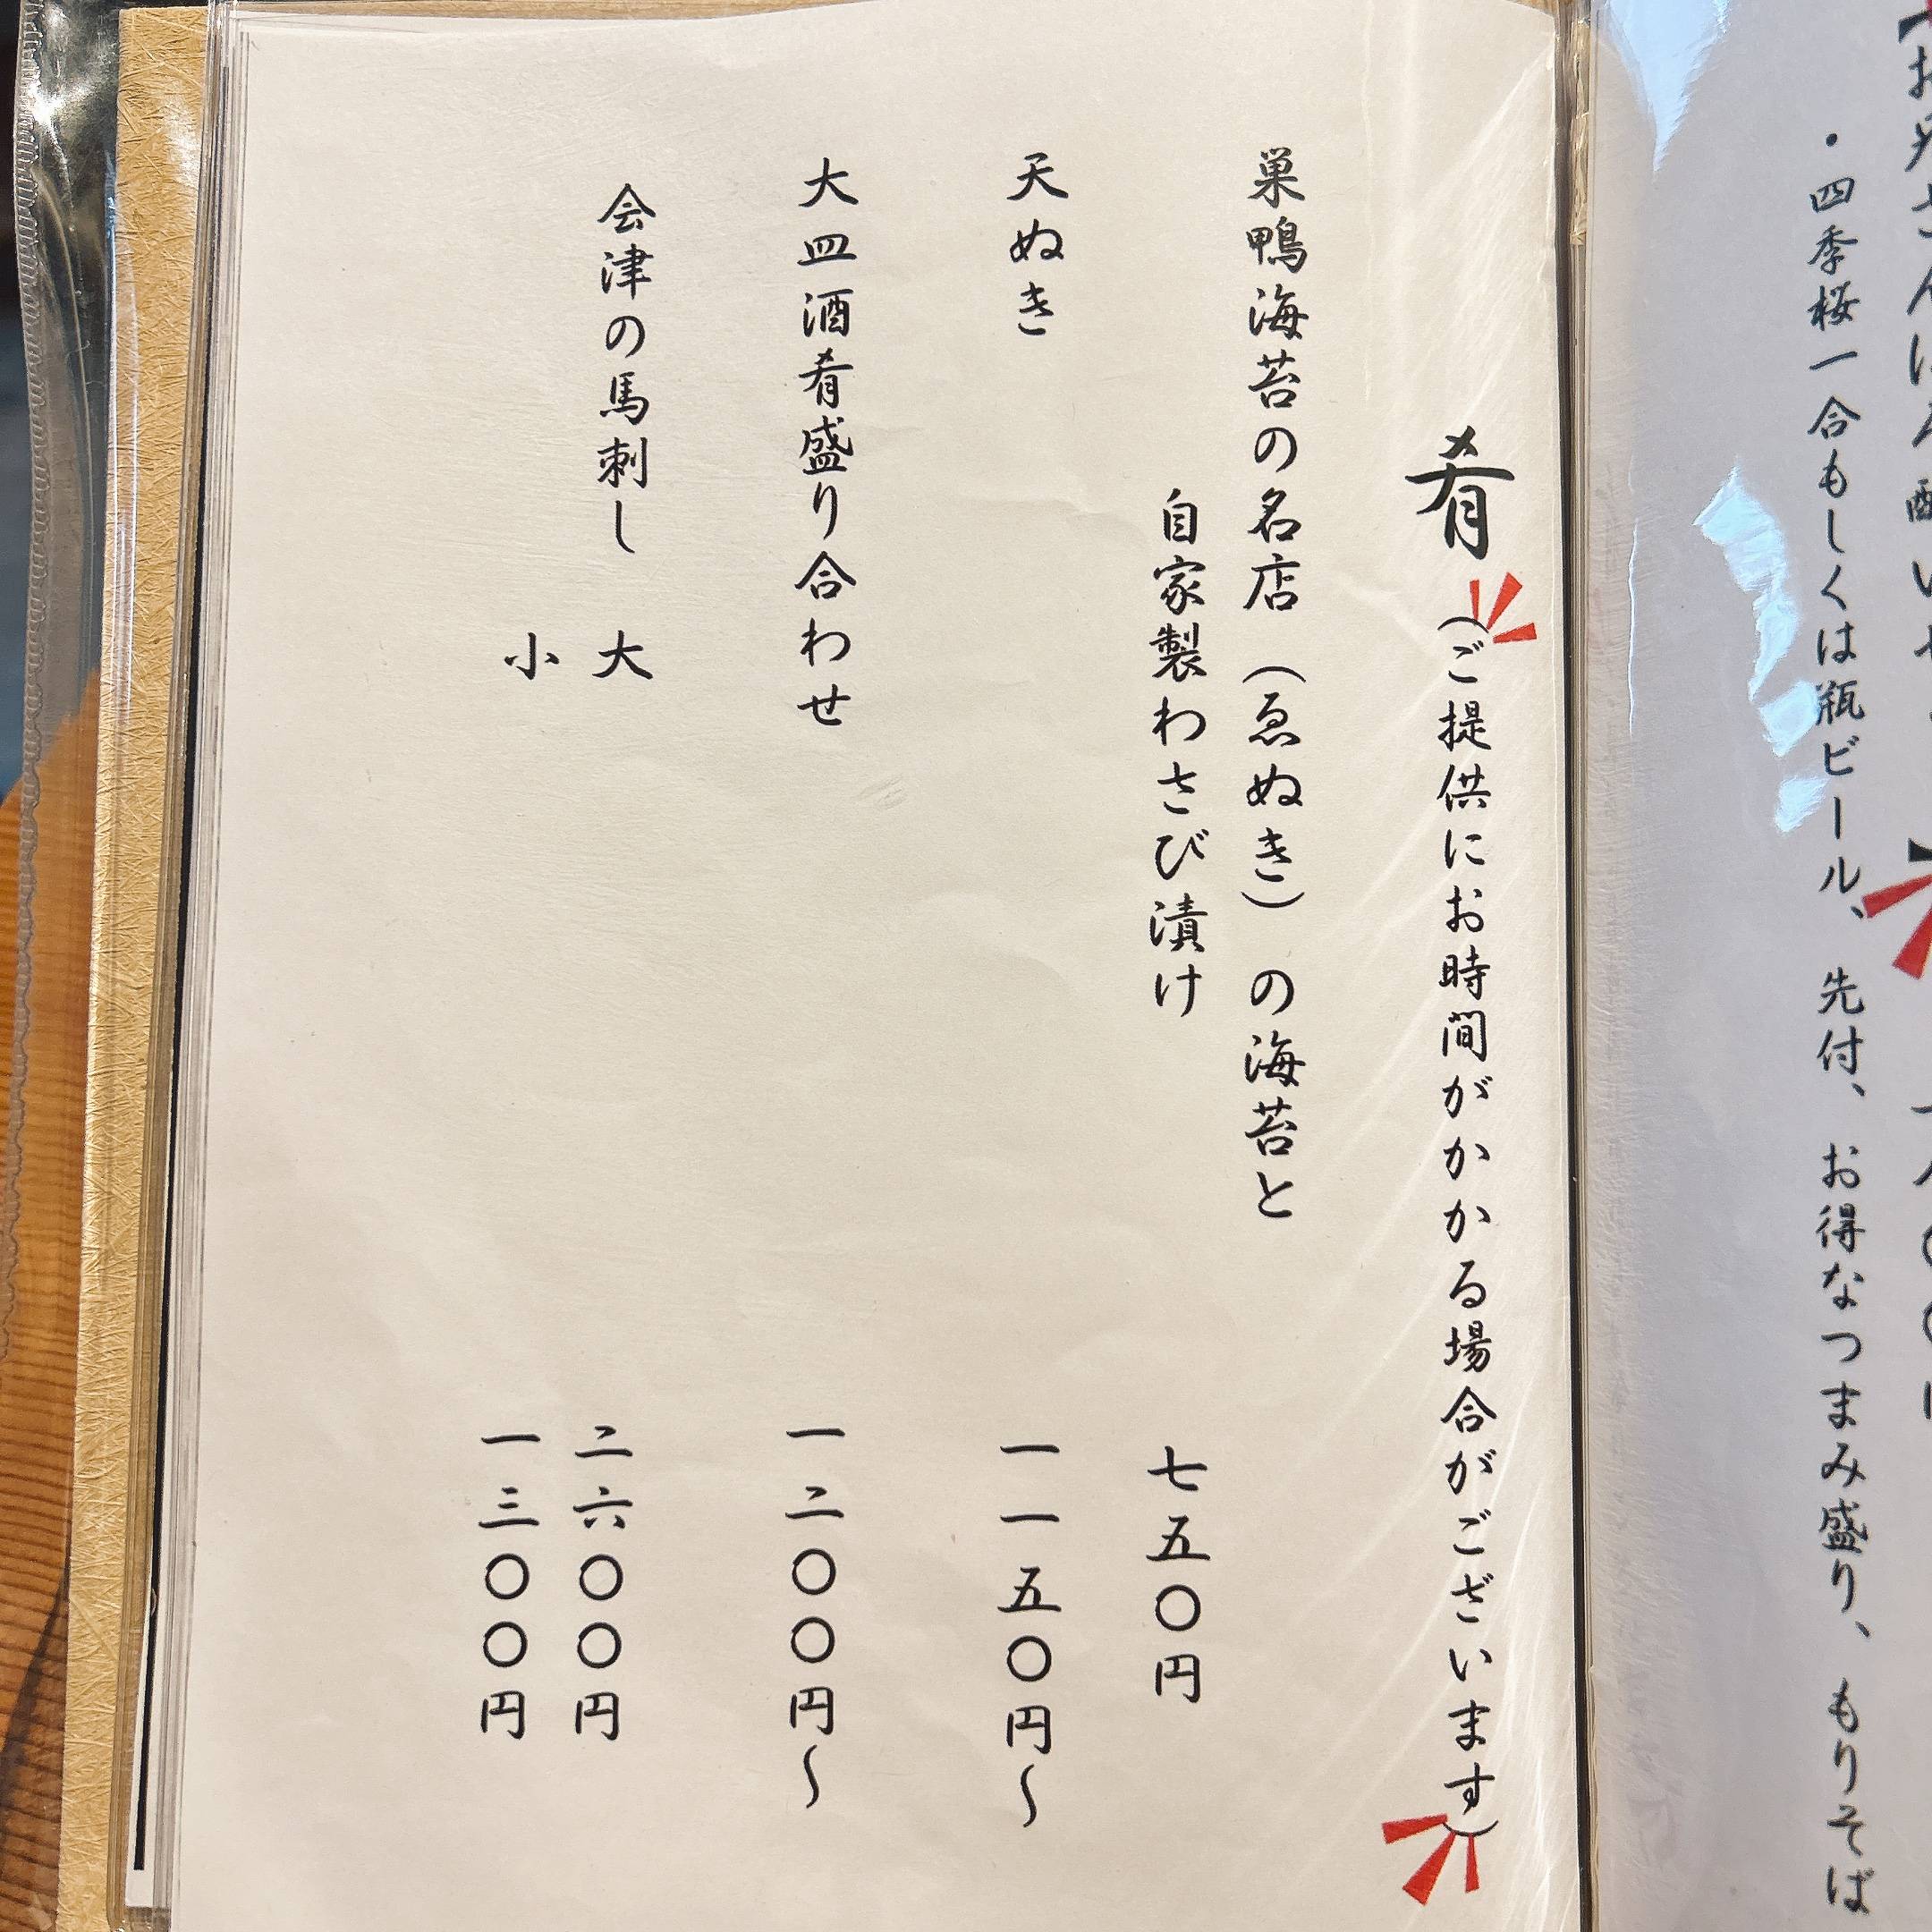 ・四季桜一合もしくは瓶ビール、先付、お得なつまみ盛り、もりそば
肴（ご提供にお時間がかかる場合がございます）
巣鴨海苔の名店（ゑぬき）の海苔と
自家製わさび漬け　七五〇円
天ぬき　一一五〇円～
大皿酒肴盛り合わせ　一二〇〇円～
会津の馬刺し　大　二六〇〇円
小　一三〇〇円